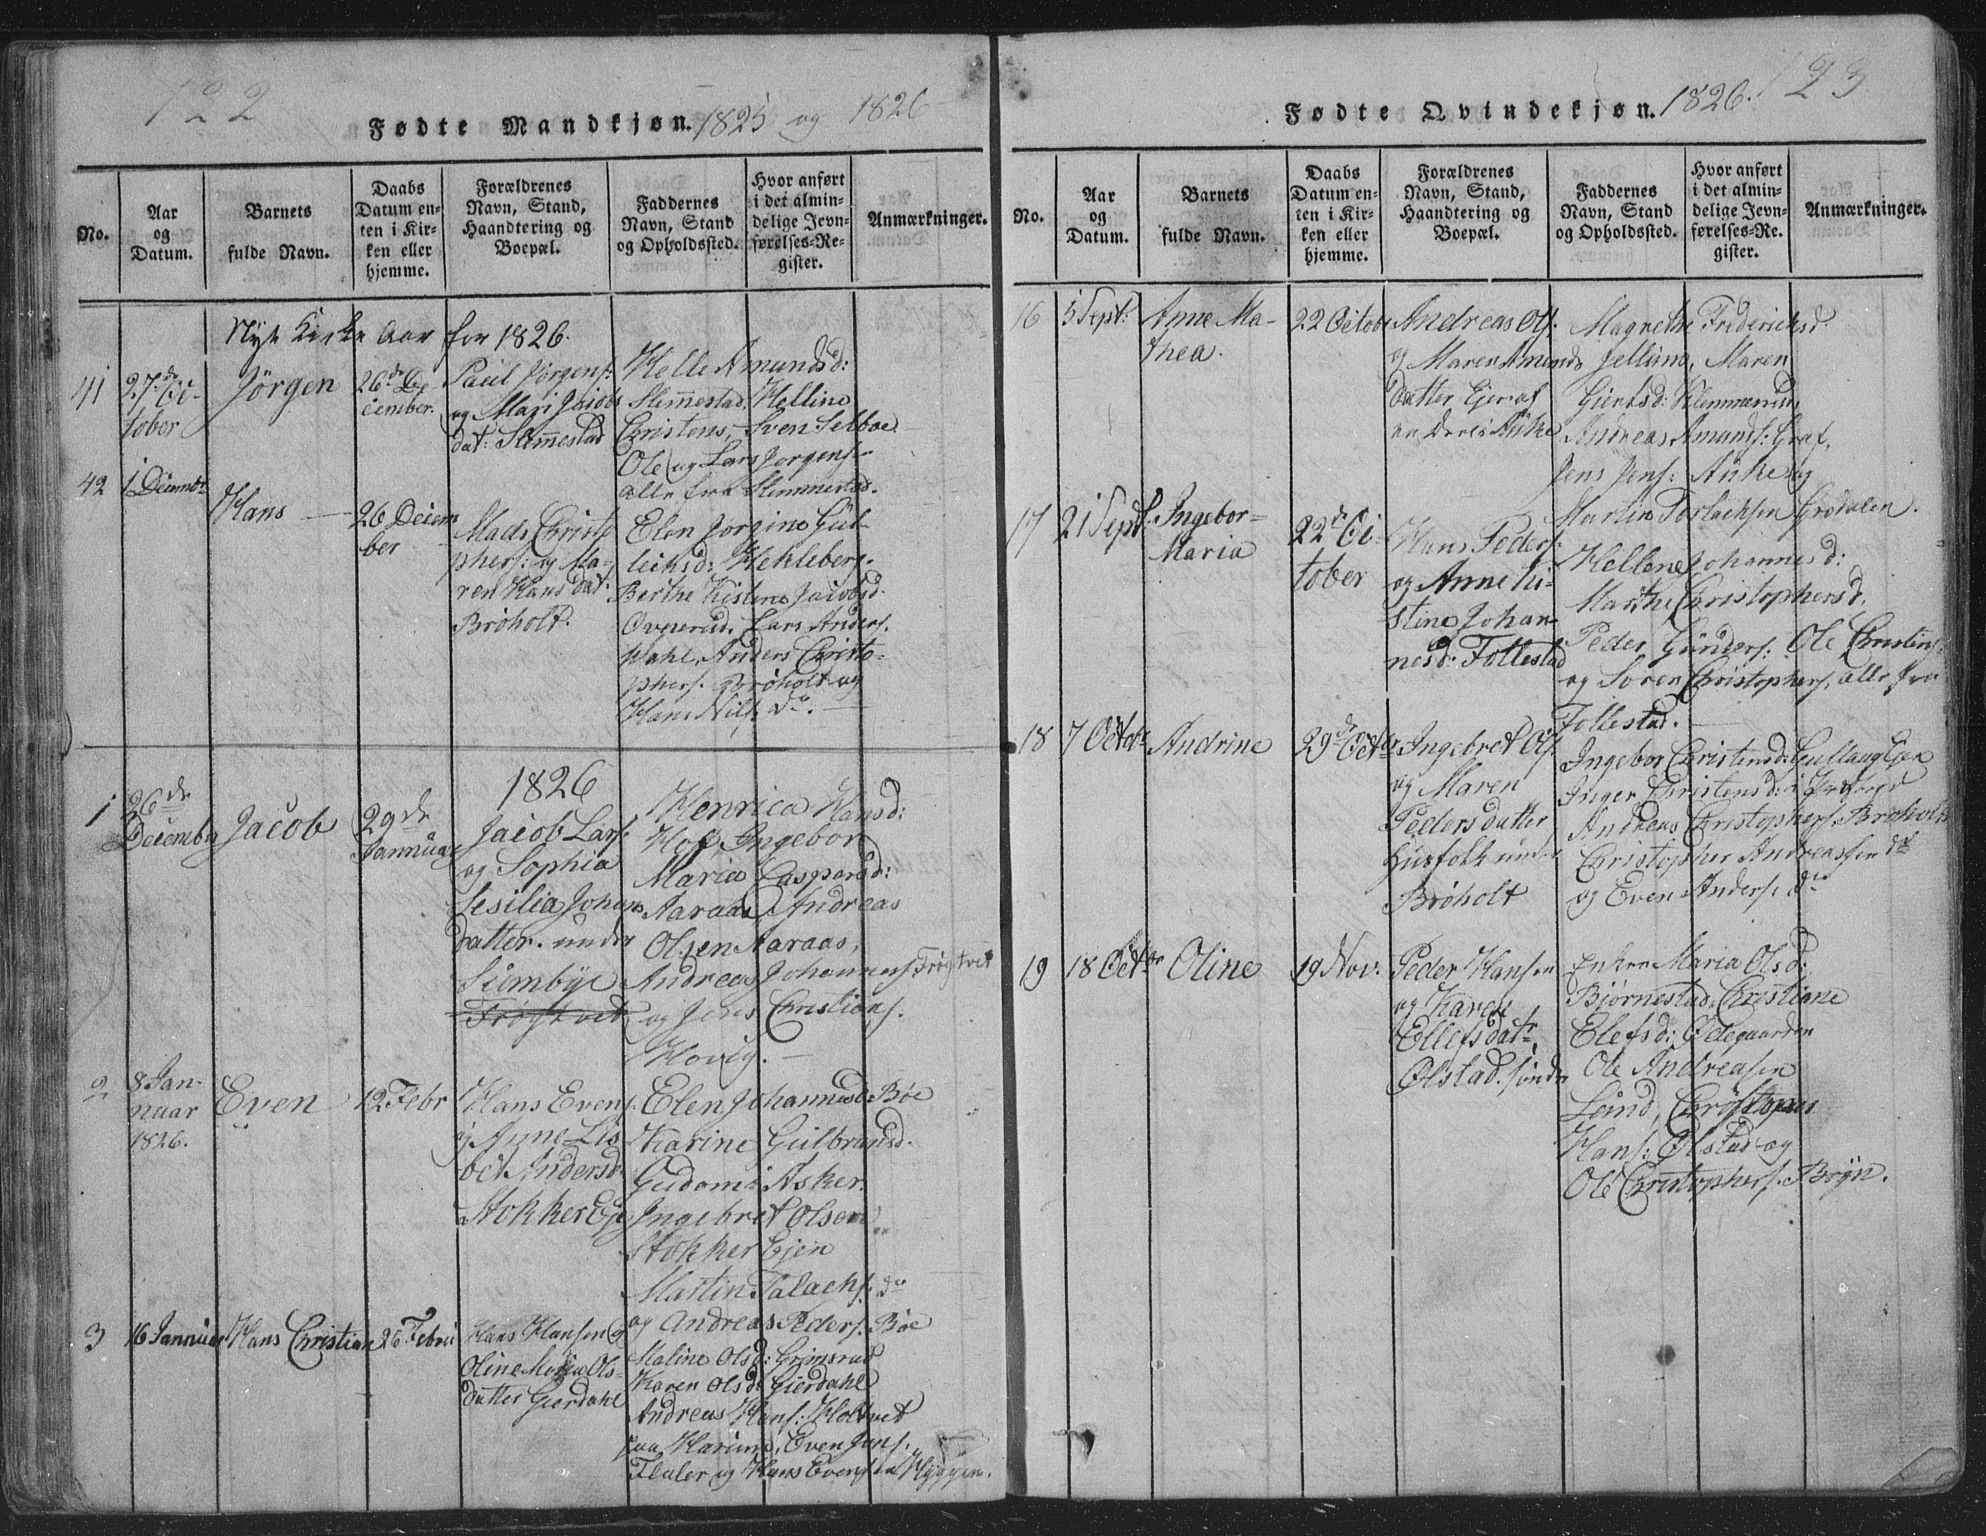 122
Fødte Mandkjøn. 1825 og 1826
No.
Aar
og
Datum.
Barnets
fulde Navn.
Daabs
Datum en-
ten i Kir-
ken eller
hjemme.
Forældrenes
Navn, Stand,
Haandtering og
Boepæl.
Faddernes
Navn, Stand
og Opholdssted.
Hvor anført
i det almin-
delige Jevn-
førelses-Re-
gister.
Anmærkninger.
Nyt Kirke Aar for 1826.
41
27de Oc-
tober
Jörgen
26de De-
cember.
Paul Jörgens:
og Mari Jacobs
dat: Slemestad
Helle Amundsd:
Slemestad, Helline
Christens, Sven Selboe
Ole og Lars Jorgens.
alle fra Slemmestad.
42
1 Decembr
Hans
26 Decem
ber
Mads Christo
phers: og Ma-
ren Hans dat:
Bröholt.
Elen Jorgine Gul-
leiksd: Hekleberg.
Berthe Kistine Jacobsd.
Ovnerud. Lars Anders.
Wahl, Anders Christo-
phers. Bröholt og
Hans Nils. do.
1826
1
26de
Decembr
Jacob
29de
Jannuar
Jacob Lars:
og Sophia
Sesilia Johans
datter. under
Sumbye
Frögtvet
Henrica Hansd:
Hof, Ingebor
Maria Caspersd:
Aaraas, Andreas
Olsen Aaraas,
Andreas Johannes. Frögtvet
og Jens Christians.
Hovig.
2
8 Jan-
nuar
1826.
Even
12 Febr
Hans Evens.
og Anne Lis
bet Andersd.
Stokker Eje
Elen Johannesd: Böe
Karine Gulbrandsd.
Gudom i Asker.
Ingebret Olsen
Stokker Ejen
Martin Talachs. do
og Andreas Peders. Böe
3
16 Jannuar
Hans Christian
26 Febru
Hans Hansen og
Oline Maria Ols-
datter Gjerdahl
Maline Olsd: Grimsrud
Karen Olsd: Gierdahl
Andreas Hans: Holtvet
paa Hurum, Even Jens.
Flaler og Hans Evensen Hyggen.
123
Fødte Qvindekjøn. 1826.
No.
Aar
og
Datum.
Barnets
fulde Navn.
Daabs
Datum en-
ten i Kir-
ken eller
hjemme.
Forældrenes
Navn, Stand,
Haandtering og
Boepæl.
Faddernes
Navn, Stand
og Opholdssted.
Hvor anført
i det almin-
delige Jevn-
førelses-Re-
gister.
Anmærkninger.
16
5 Sept:
Anne Ma-
thea.
22 Octobr
Andreas Ols.
og Maren Amunds
datter Ejer af
Magnethe Fredericksd.
Jellum, Maren
Giertsd: Klemmerud,
Andreas Amunds: Graf,
Jens Jens: Auke og
Martin Torlachsen Grödalen.
17
21 Sept.
Ingebor
Maria
22de Oc-
tober
Hans Peders.
og Anne Ki-
stine Johan
nesd: Follestad
Hellene Johannesd:
Marthe Christophersd.
Peder Gunders: Ole Christens:
og Soren Christophers. alle fra
Follestad.
18
7 Octobr
Andrine
29de Octbr
Ingebret Ols.
og Maren
Pedersdatter
Huusfolk under
Bröholt
Ingebor Christensd: Gullaug Ejen
Inger Christensd:
Andreas Christophers. Bröholt
Christopher Andreassen do
og Even Anders. do
19
18 Octbr
Oline
19 Nov.
Peder Hansen
og Karen
Ellefsdatr.
Ölstad. söndr
Enken Maria Olsd:
Björnestad, Christiane
Elefsd: Ödegaarden
Ole Andreasen
Lund, Cristopher
Hans: Ölstad og
Ole Christophers. Bröyn.